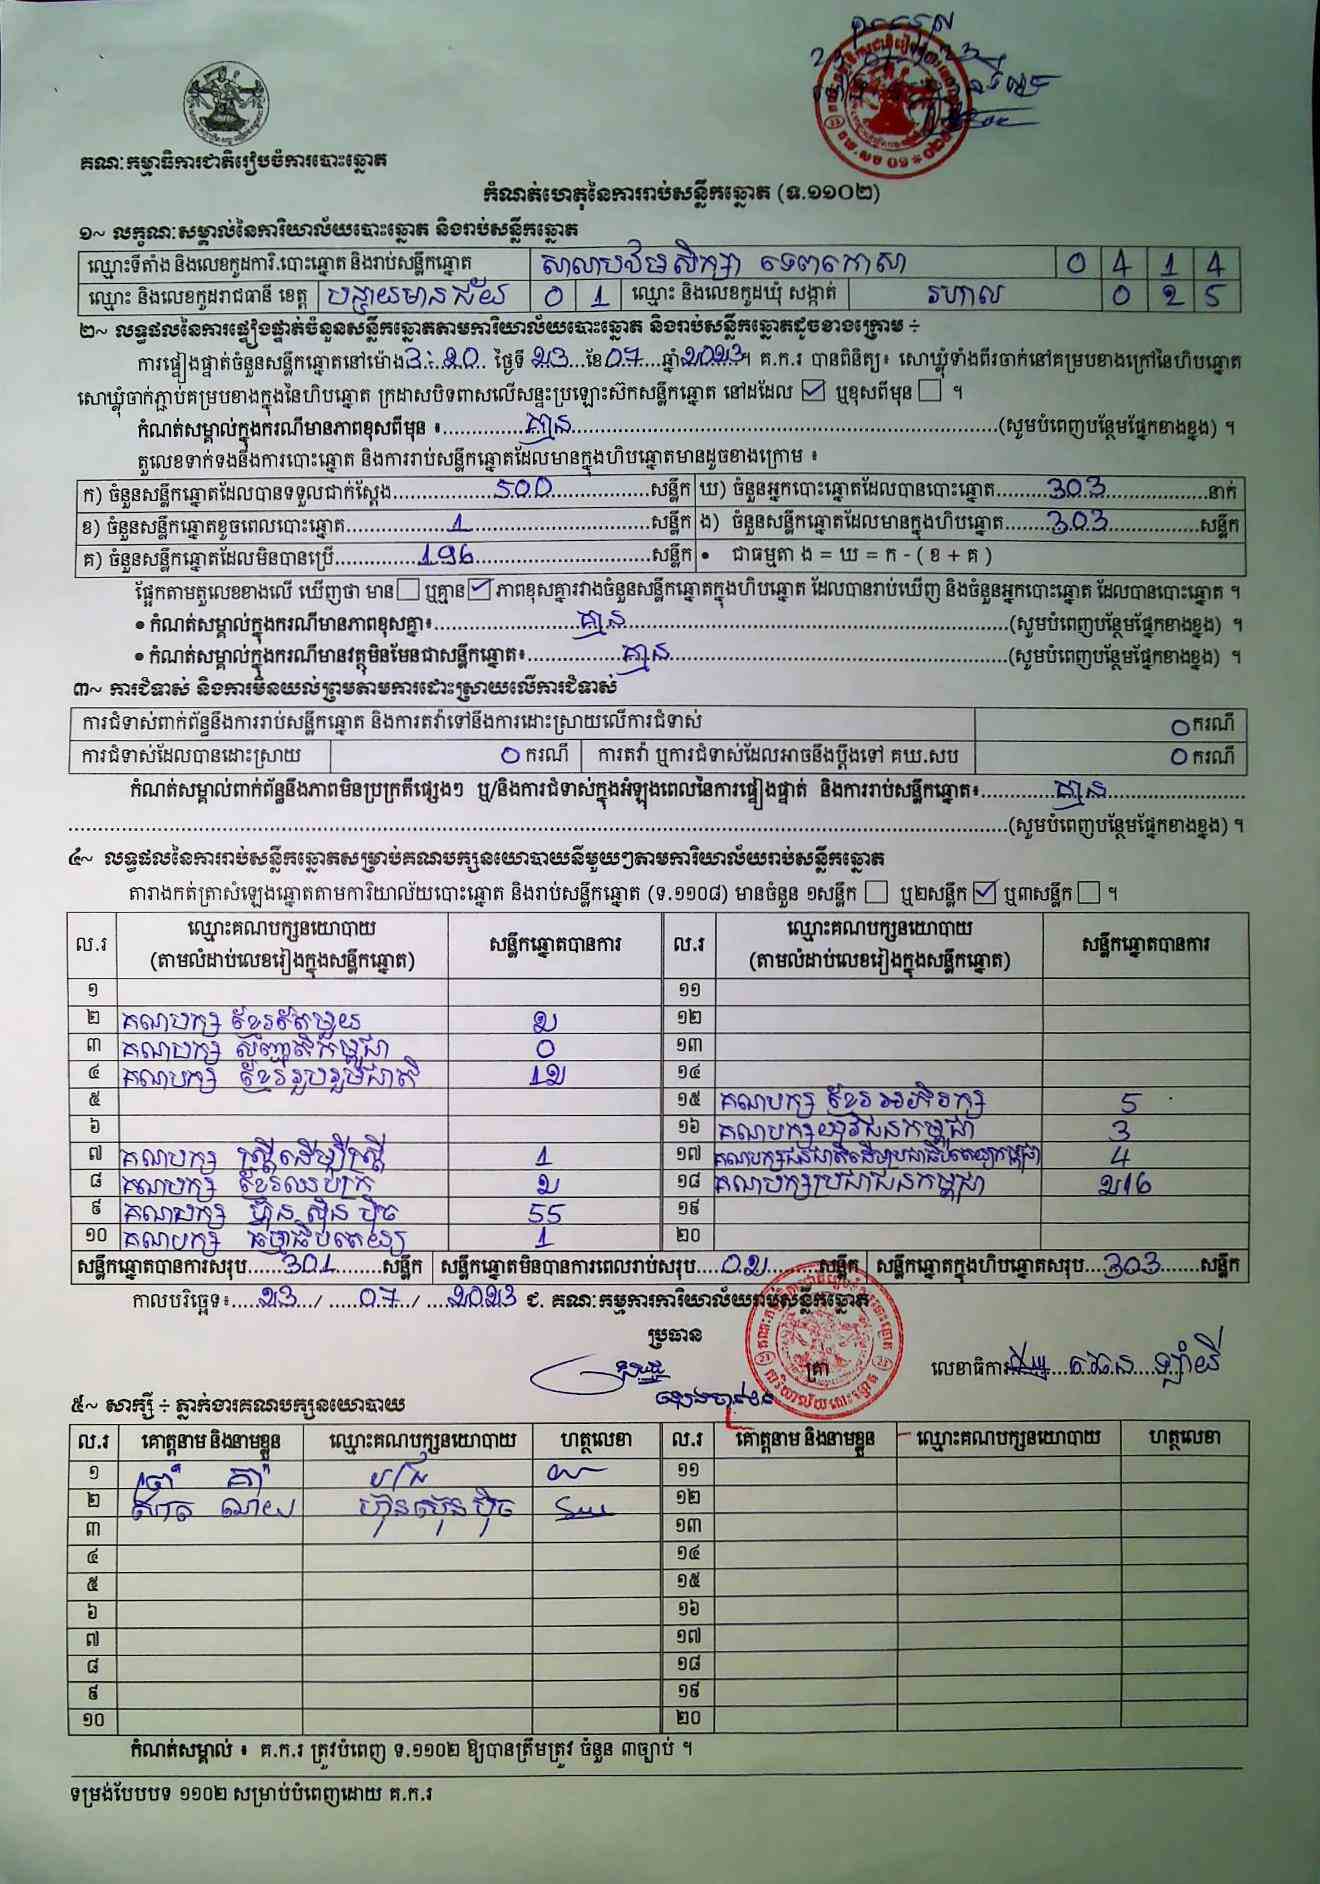 គណៈកម្មាធិការជាតិរៀបចំការបោះឆ្នោត
កំណត់ហេតុនៃការរាប់សន្លឹកឆ្នោត (ទ.១១០២)
១~ លក្ខណៈសម្គាល់នៃការិយាល័យបោះឆ្នោត និងរាប់សន្លឹកឆ្នោត
ឈ្មោះទីតាំង និងលេខកូដការិ.បោះឆ្នោត និងរាប់សន្លឹកឆ្នោត សាលាបឋមសិក្សា ទេពកោសា 0 4 1 4
ឈ្មោះ និងលេខកូដរាជធានី ខេត្ត បន្ទាយមានជ័យ 0 1 ឈ្មោះ និងលេខកូដឃុំ សង្កាត់ រហាល 0 2 5
២~ លទ្ធផលនៃការផ្ទៀងផ្ទាត់ចំនួនសន្លឹកឆ្នោតតាមការិយាល័យបោះឆ្នោត និងរាប់សន្លឹកឆ្នោតដូចខាងក្រោម ÷
ការផ្ទៀងផ្ទាត់ចំនួនសន្លឹកឆ្នោតនៅម៉ោង 3:20 ថ្ងៃទី 23 ខែ 07 ឆ្នាំ 2023 ។ គ.ក.រ បានពិនិត្យ៖ សោឃ្លុំទាំងពីរចាក់នៅគម្របខាងក្រៅនៃហិបឆ្នោត
សោឃ្លុំចាក់ភ្ជាប់គម្របខាងក្នុងនៃហិបឆ្នោត ក្រដាសបិទពាសលើសន្ទះប្រឡោះស៊កសន្លឹកឆ្នោត នៅដដែល ☑ ឬខុសពីមុន ☐ ។
កំណត់សម្គាល់ក្នុងករណីមានភាពខុសពីមុន ៖ គ្មាន (សូមបំពេញបន្ថែមផ្នែកខាងខ្នង) ។
តួលេខទាក់ទងនឹងការបោះឆ្នោត និងការរាប់សន្លឹកឆ្នោតដែលមានក្នុងហិបឆ្នោតមានដូចខាងក្រោម ៖
ក) ចំនួនសន្លឹកឆ្នោតដែលបានទទួលជាក់ស្តែង 500 សន្លឹក ឃ) ចំនួនអ្នកបោះឆ្នោតដែលបានបោះឆ្នោត 303 នាក់
ខ) ចំនួនសន្លឹកឆ្នោតខូចពេលបោះឆ្នោត 1 សន្លឹក ង) ចំនួនសន្លឹកឆ្នោតដែលមានក្នុងហិបឆ្នោត 303 សន្លឹក
គ) ចំនួនសន្លឹកឆ្នោតដែលមិនបានប្រើ 196 សន្លឹក • ជាធម្មតា ង = ឃ = ក - ( ខ + គ )
ផ្អែកតាមតួលេខខាងលើ ឃើញថា មាន ☐ ឬគ្មាន ☑ ភាពខុសគ្នារវាងចំនួនសន្លឹកឆ្នោតក្នុងហិបឆ្នោត ដែលបានរាប់ឃើញ និងចំនួនអ្នកបោះឆ្នោត ដែលបានបោះឆ្នោត ។
• កំណត់សម្គាល់ក្នុងករណីមានភាពខុសគ្នា៖ គ្មាន (សូមបំពេញបន្ថែមផ្នែកខាងខ្នង) ។
• កំណត់សម្គាល់ក្នុងករណីមានវត្ថុមិនមែនជាសន្លឹកឆ្នោត៖ គ្មាន (សូមបំពេញបន្ថែមផ្នែកខាងខ្នង) ។
៣~ ការជំទាស់ និងការមិនយល់ព្រមតាមការដោះស្រាយលើការជំទាស់
ការជំទាស់ពាក់ព័ន្ធនឹងការរាប់សន្លឹកឆ្នោត និងការតវ៉ាទៅនឹងការដោះស្រាយលើការជំទាស់ 0 ករណី
ការជំទាស់ដែលបានដោះស្រាយ 0 ករណី ការតវ៉ា ឬការជំទាស់ដែលអាចនឹងប្តឹងទៅ គឃ.សប 0 ករណី
កំណត់សម្គាល់ពាក់ព័ន្ធនឹងភាពមិនប្រក្រតីផ្សេងៗ ឬ/និងការជំទាស់ក្នុងអំឡុងពេលនៃការផ្ទៀងផ្ទាត់ និងការរាប់សន្លឹកឆ្នោត៖ គ្មាន
(សូមបំពេញបន្ថែមផ្នែកខាងខ្នង) ។
៤~ លទ្ធផលនៃការរាប់សន្លឹកឆ្នោតសម្រាប់គណបក្សនយោបាយនីមួយៗតាមការិយាល័យរាប់សន្លឹកឆ្នោត
តារាងកត់ត្រាសំឡេងឆ្នោតតាមការិយាល័យបោះឆ្នោត និងរាប់សន្លឹកឆ្នោត (ទ.១១០៨) មានចំនួន ១សន្លឹក ☐ ឬ២សន្លឹក ☑ ឬ៣សន្លឹក ☐ ។
ល.រ ឈ្មោះគណបក្សនយោបាយ (តាមលំដាប់លេខរៀងក្នុងសន្លឹកឆ្នោត) សន្លឹកឆ្នោតបានការ ល.រ ឈ្មោះគណបក្សនយោបាយ (តាមលំដាប់លេខរៀងក្នុងសន្លឹកឆ្នោត) សន្លឹកឆ្នោតបានការ
១ ១១
២ គណបក្ស ខ្មែរតែមួយ 2 ១២
៣ គណបក្ស សញ្ជាតិកម្ពុជា 0 ១៣
៤ គណបក្ស ខ្មែររួបរួមជាតិ 12 ១៤
៥ ១៥ គណបក្ស ខ្មែរអភិរក្ស 5
៦ ១៦ គណបក្សយុវជនកម្ពុជា 3
៧ គណបក្ស ស្ត្រីដើម្បីស្ត្រី 1 ១៧ គណបក្សជនជាតិដើមប្រជាធិបតេយ្យកម្ពុជា 4
៨ គណបក្ស ខ្មែរឈប់ក្រ 2 ១៨ គណបក្សប្រជាជនកម្ពុជា 216
៩ គណបក្ស ហ៊្វុនស៊ិនប៉ិច 55 ១៩
១០ គណបក្ស ធម្មាធិបតេយ្យ 1 ២០
សន្លឹកឆ្នោតបានការសរុប 301 សន្លឹក សន្លឹកឆ្នោតមិនបានការពេលរាប់សរុប 02 សន្លឹក សន្លឹកឆ្នោតក្នុងហិបឆ្នោតសរុប 303 សន្លឹក
កាលបរិច្ឆេទ៖ 23 / 07 / 2023 ជ. គណៈកម្មការការិយាល័យរាប់សន្លឹកឆ្នោត
ប្រធាន
ត្រា លេខាធិការ
៥~ សាក្សី ÷ ភ្នាក់ងារគណបក្សនយោបាយ
ល.រ គោត្តនាម និងនាមខ្លួន ឈ្មោះគណបក្សនយោបាយ ហត្ថលេខា ល.រ គោត្តនាម និងនាមខ្លួន ឈ្មោះគណបក្សនយោបាយ ហត្ថលេខា
១ ១១
២ ហ៊្វុនស៊ិនប៉ិច ១២
៣ ១៣
៤ ១៤
៥ ១៥
៦ ១៦
៧ ១៧
៨ ១៨
៩ ១៩
១០ ២០
កំណត់សម្គាល់ ៖ គ.ក.រ ត្រូវបំពេញ ទ.១១០២ ឱ្យបានត្រឹមត្រូវ ចំនួន ៣ច្បាប់ ។
ទម្រង់បែបបទ ១១០២ សម្រាប់បំពេញដោយ គ.ក.រ